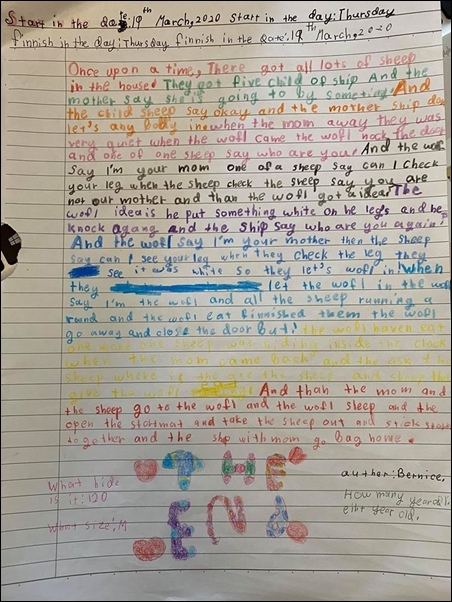 Start in the date:19th March,2020 Start in the day:Thursday
finnish in the day:Thursday finnish in the date:19th March,2020
Once upon a time, There got all lots of sheep
in the house! They got five child of ship And the
mother say she is going to by someting! And
the child sheep say okay and the mother ship don
let's any body in when the mom away they was
very quiet when the wofl came the wofl nock the door
and one of one sheep say who are you! And the wofl
say I'm your mom one of a sheep say can I check
your leg when the sheep check the sheep say you are
not our mother and than the wofl got a idea! The
wofl idea is he put something white on he legs and he
knock agang and the ship say who are you again!
And the wofl say I'm your mother then the sheep
say can I see your leg when they check the leg they
see it was white so they let's wofl in! when
they let the wofl in the wofl
say I'm the wofl and all the sheep running a
round and the wofl eat finnished them the wofl
go away and close the door But! the wofl haven eat
one more one sheep was hiding inside the clock
when the mom came back and the ask the
sheep where is the the sheep and
give the wofl And than the mom and
the sheep go to the wofl and the wofl sleep and the
open the stortmat and take the sheep out and stick
together and the ship with mom go bag home.
THE
END
What kids
is it:120
What size:M
auther:Bernice,
How many years old:
eiht year old.